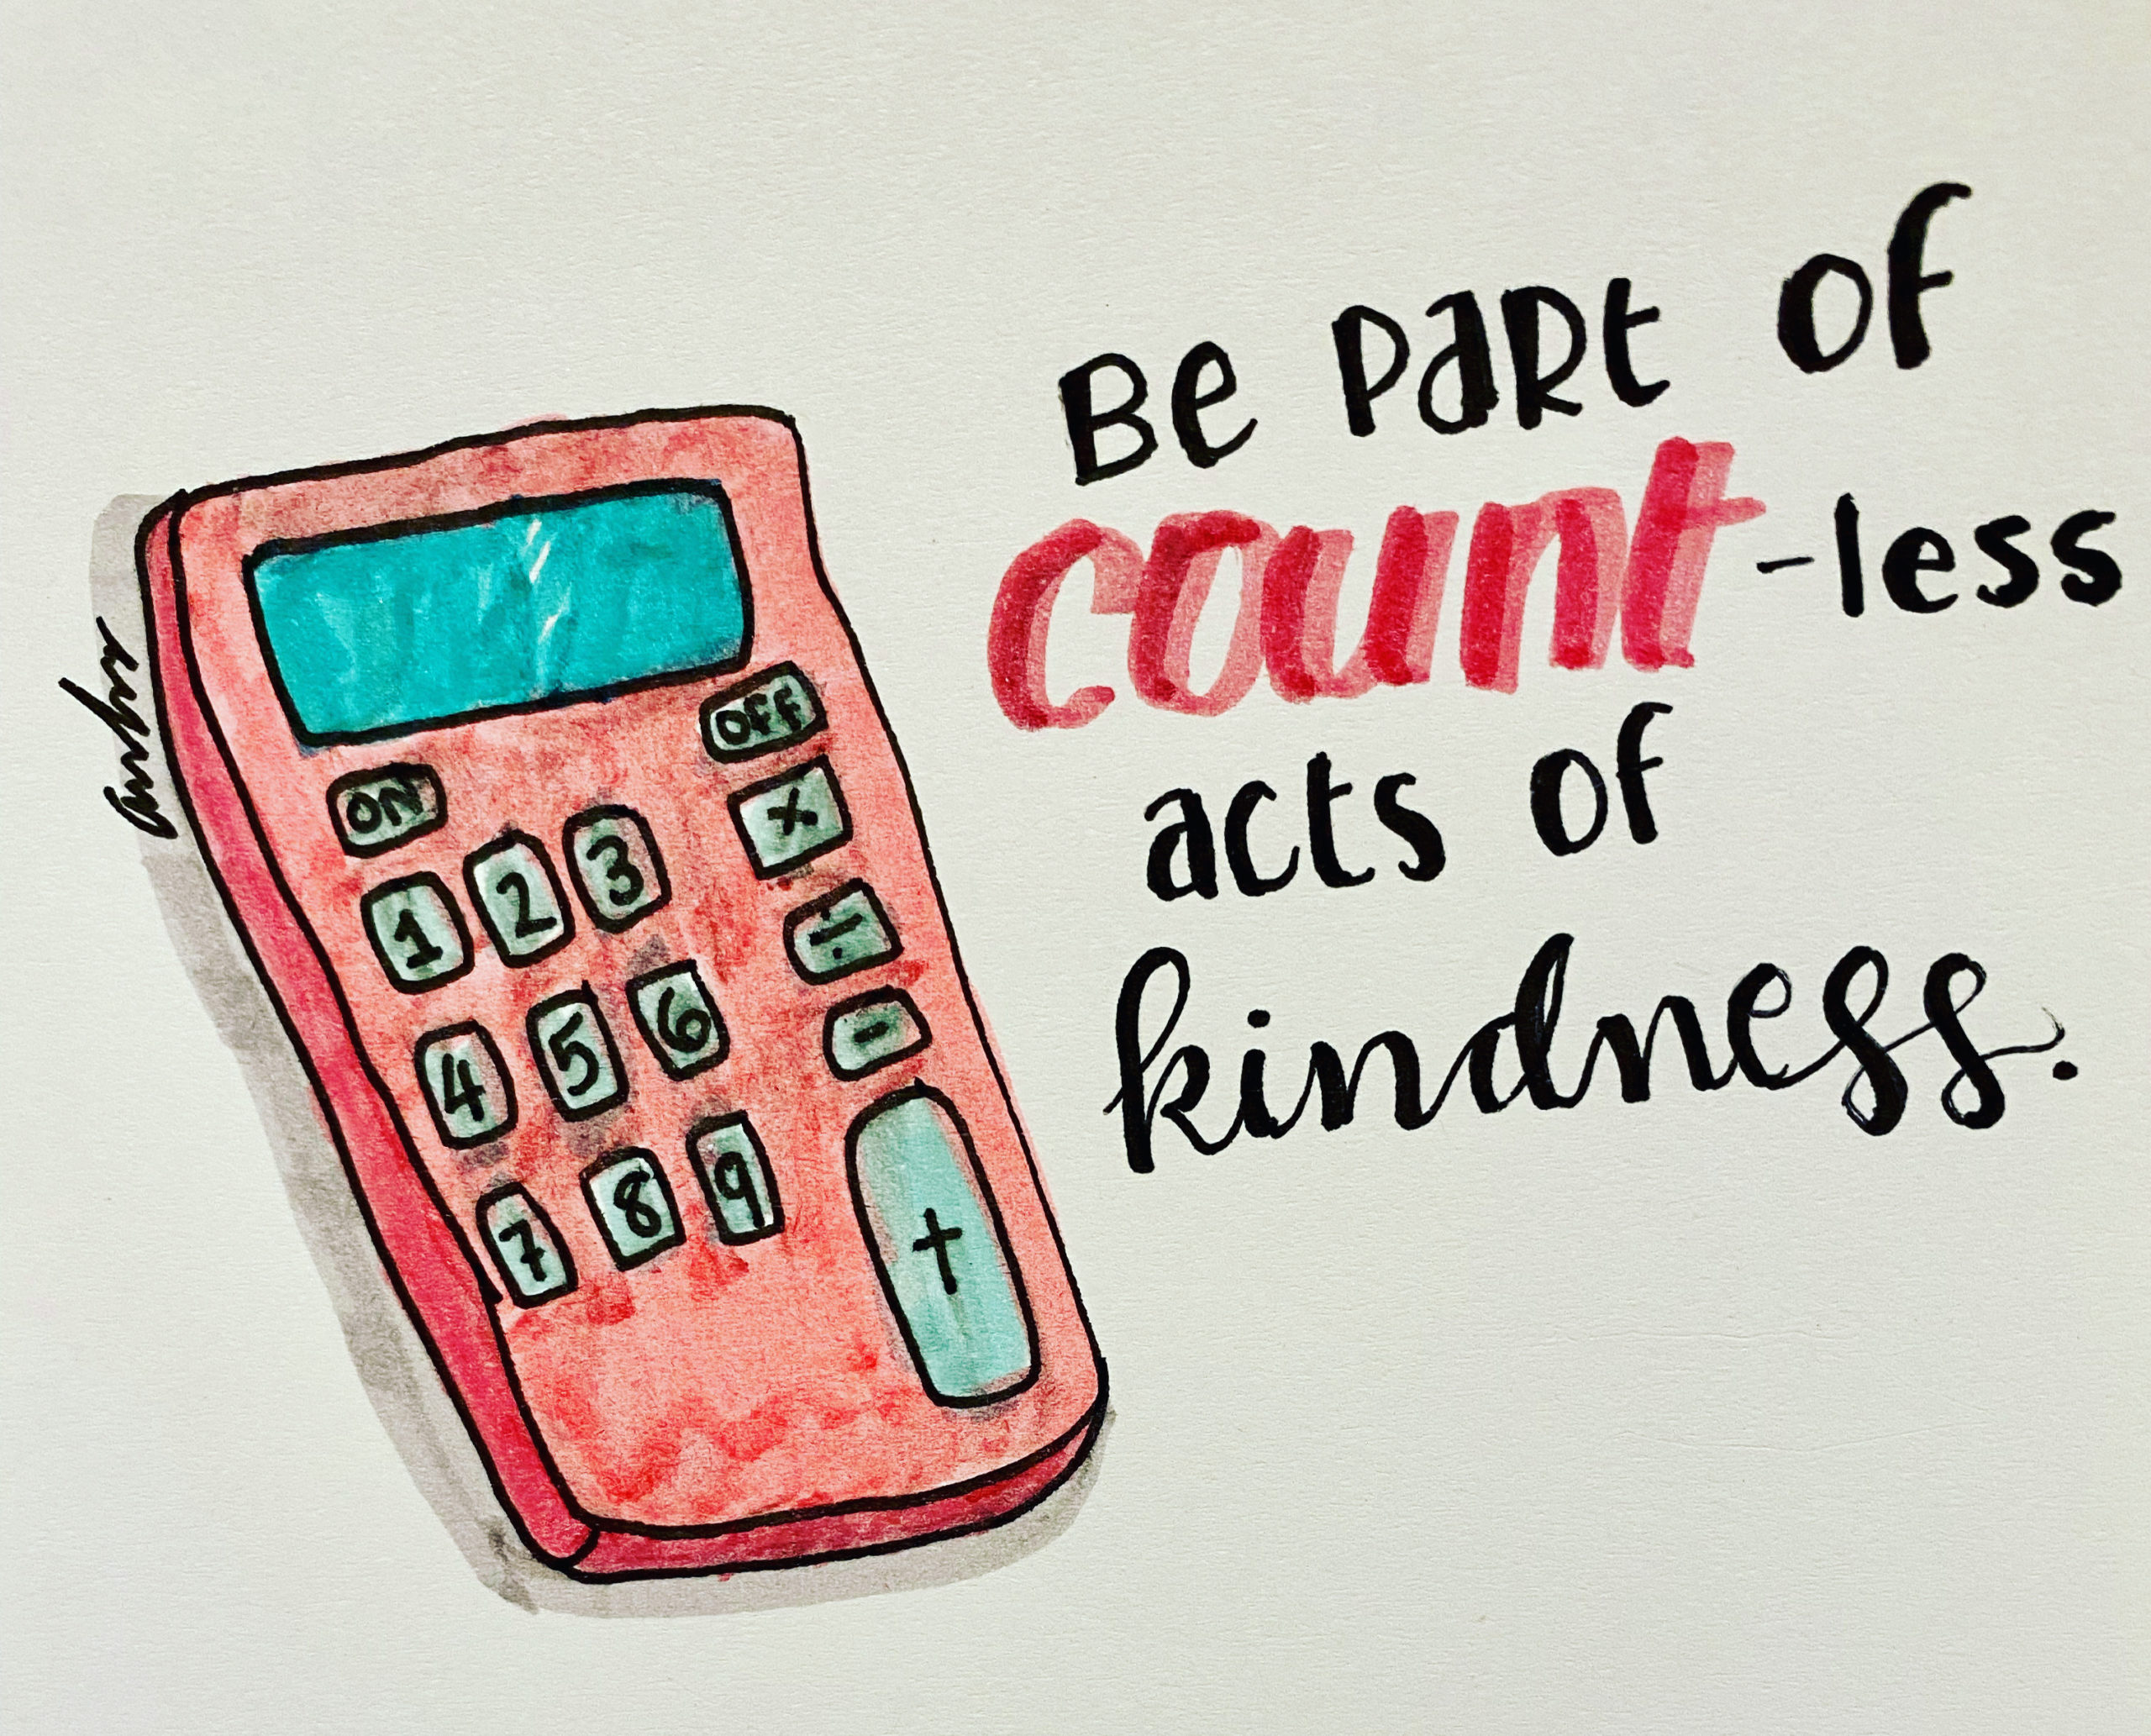 Be part of
count-less
acts of
kindness.
OFF
ON
×
1 2 3
÷
4 5 6
-
7 8 9
+